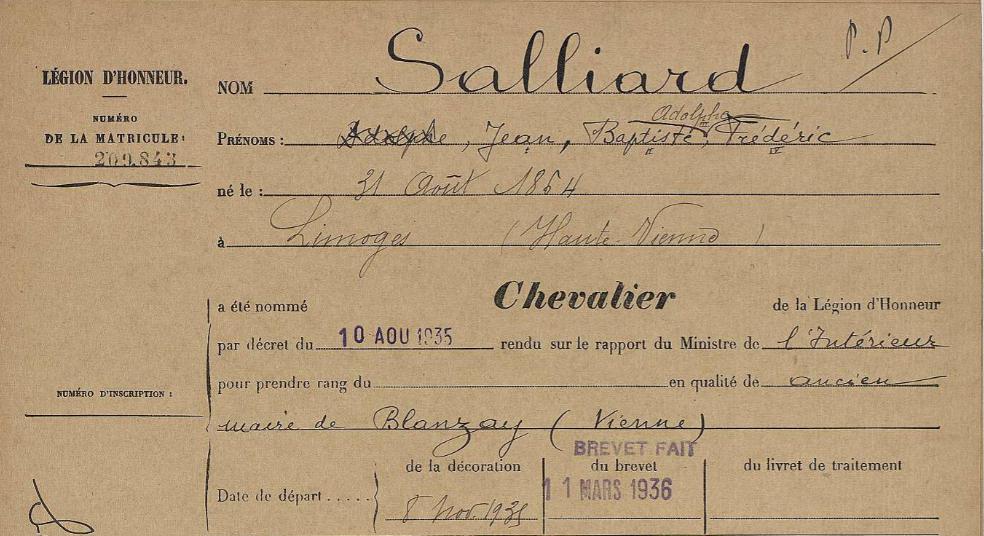 P.P
LÉGION D'HONNEUR.
NUMÉRO
DE LA MATRICULE :
209.843
NOM Salliard
Adolphe
PRÉNOMS : Adolphe, Jean, Baptiste, Frédéric
II III IV
né le : 31 Août 1854
à Limoges (Haute-Vienne)
a été nommé Chevalier de la Légion d'Honneur
par décret du 10 AOU 1935 rendu sur le rapport du Ministre de l'Intérieur
pour prendre rang du en qualité de ancien
NUMÉRO D'INSCRIPTION :
maire de Blanzay (Vienne)
BREVET FAIT
de la décoration du brevet du livret de traitement
Date de départ ..... 8 Nov. 1935 11 MARS 1936